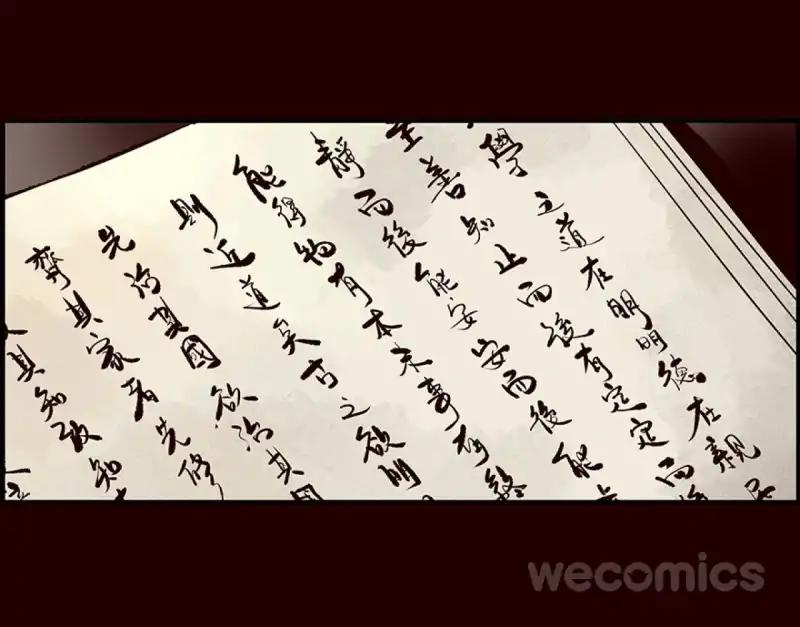 學之道在明明德在親
至善知止而後有定定而
靜而後能安安而後能
能得物有本末事有終
則近道矣古之欲明
先治其國欲治其國
齊其家者先修
其知致知
wecomics